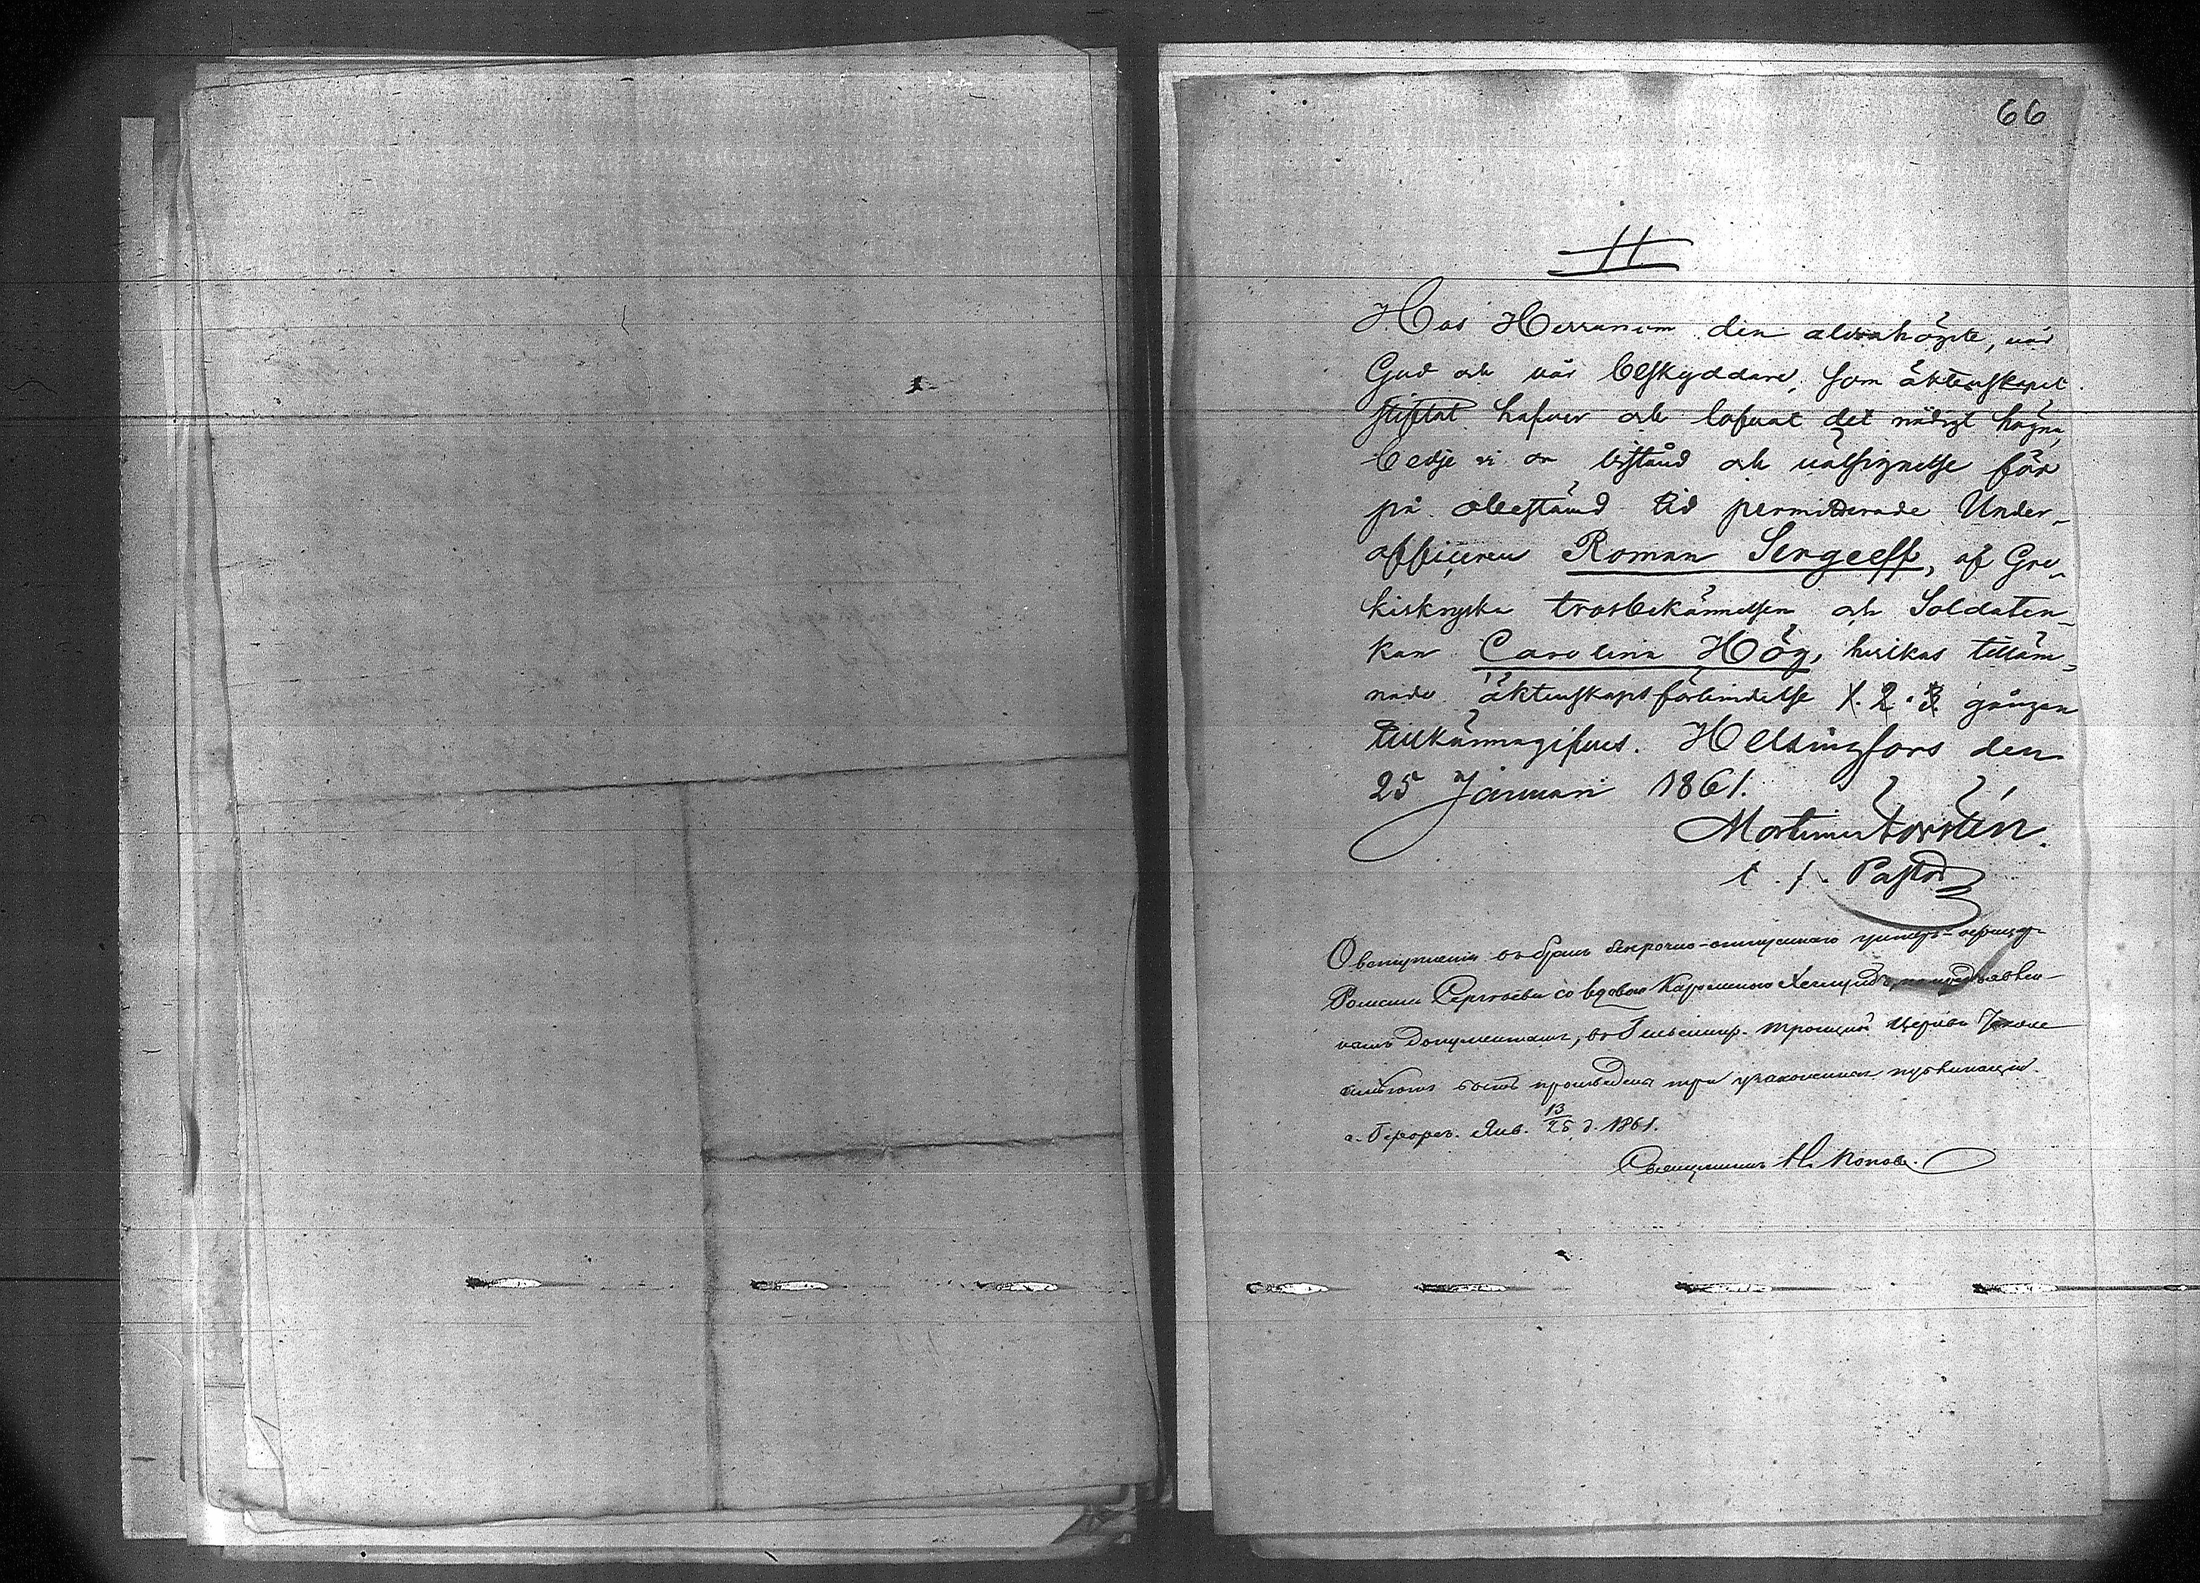 66
11
Hos Herranom den aldrahögste, vår
Gud och vår beskyddare, som äktenskapet
stiftat hafver och lofvat det nådigt hägna,
bedje vi om bistånd och välsignelse för
på obestämd tid permitterade Under-
officeren Roman Sergeeff, af Gre-
kiskryska trosbekännelsen och Soldaten-
kan Carolina Hög, hvilkas tilläm-
nade äktenskapsförbindelse 1. 2. 3. gången
tillkännagifves. Helsingfors den
25 Januari 1861.
Mortimer
t. f. Pastor
О вступлении въ бракъ безсрочно-отпускнаго унтеръ-офицера
Романа Сергѣева со вдовою Каролиною по предъявлен-
нымъ документамъ, въ Гельсингф. Троицкой Церкви
имѣютъ быть произведены три узаконенныя публикации.
г. Гельсингфорсъ. Янв. 13/25 д. 1861.
Священникъ Н. Поповъ.